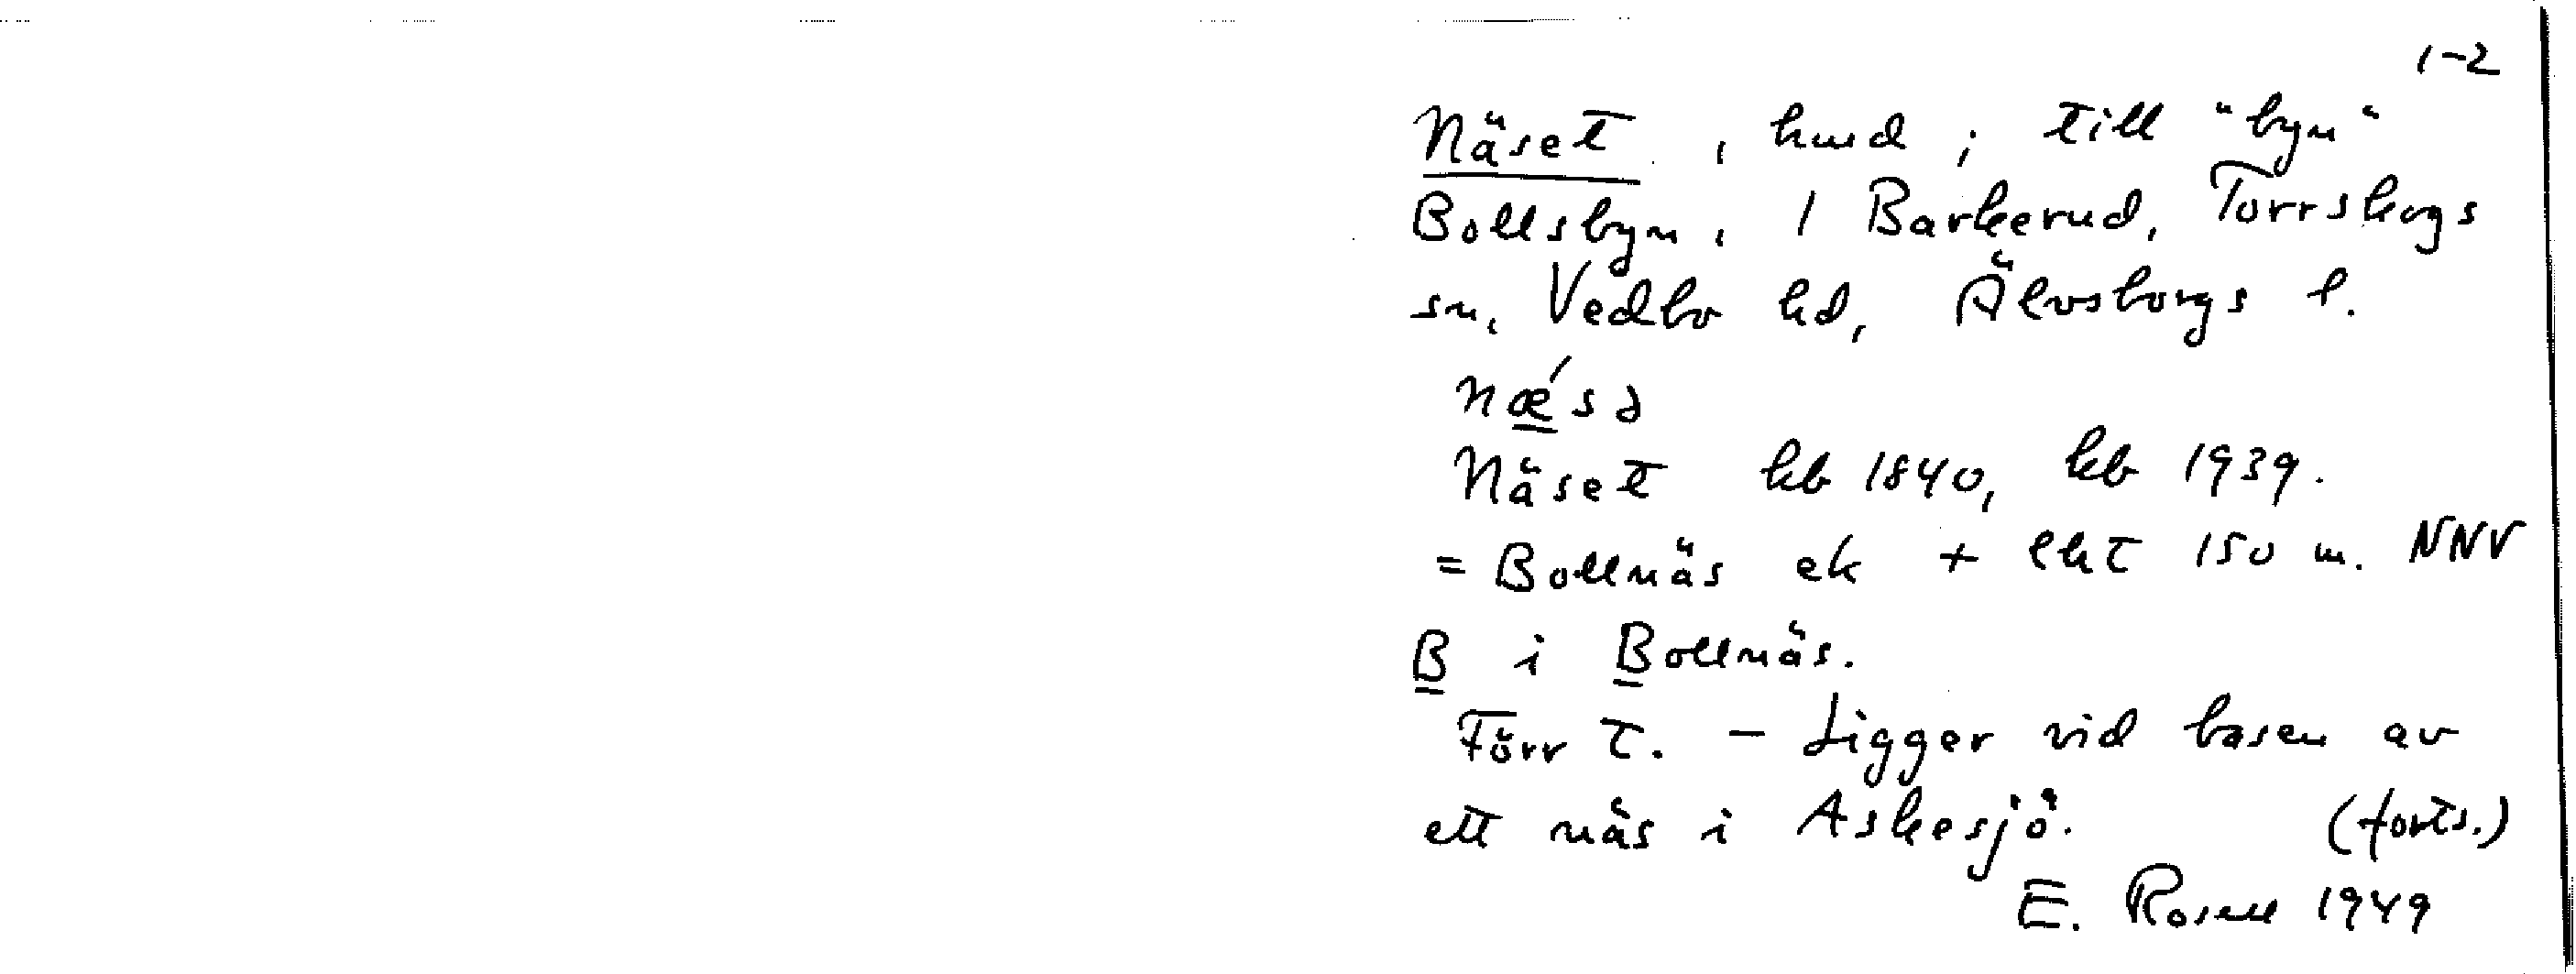 1-2
Näset, hmd; till "byn"
Bollsbyn, 1 Barkerud, Torrskogs
sn, Vedbo hd, Älvsborgs l.
nǽsə
Näset kb 1840, kb 1939.
= Bollnäs ek + lht 150 m. NNV
B i Bollnäs.
Förr t. - Ligger vid basen av
ett näs i Askesjö. (forts.)
E. Rosell 1949